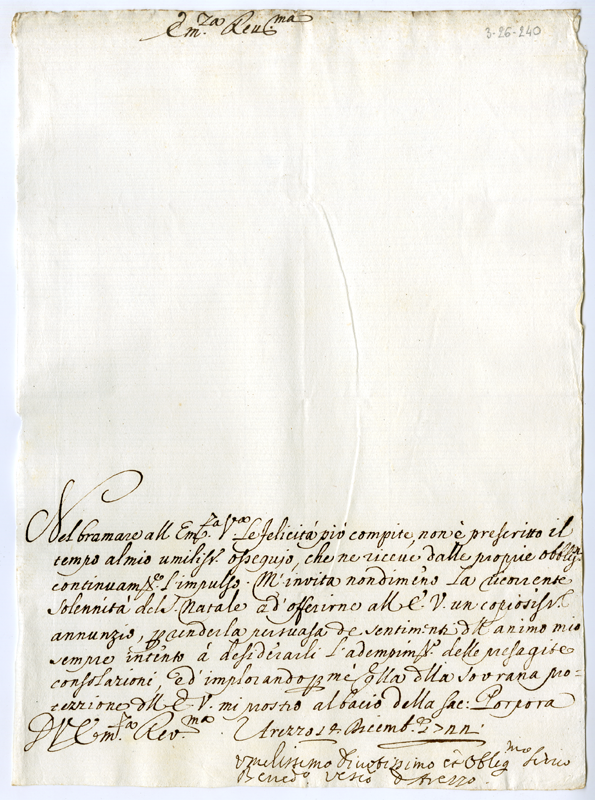 Em.za Reu.ma
3-26-240
Nel bramare all Em.za V.a Le felicità più compite, non è prescritto il
tempo al mio umiliss.o ossequio, che ne riceue dalle proprie obbliga:
continuam.te l'impulso. M'inuita nondimeno La ricorrente
Solennità del S. Natale ad offerirne all E. V. un copiosiss.o
annunzio, p renderla persuasa de sentimenti dll animo mio
sempre intento à desiderarli l'adempim.to delle presagite
consolazioni, Ed implorando p me q.lla dlla sourana pro=
tezzione dll E. V. mi prostro al bacio della sac: Porpora
D V Em.za Reu.ma Arezzo 14 Dicemb.e
Vmilissimo Diuotissimo et Obblig.mo Seruo
Bened.o Vesco d'Arezzo